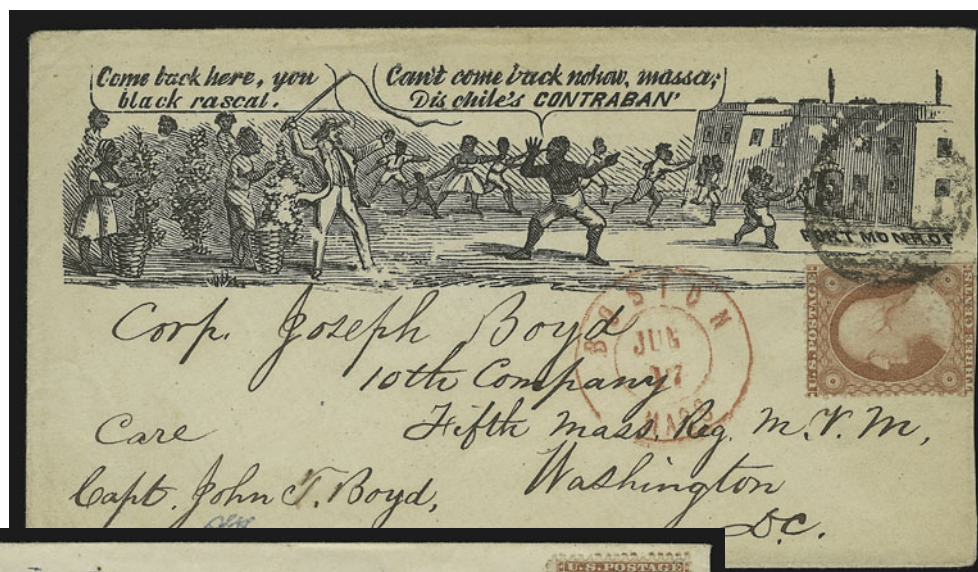 Come back here, you
black rascal.
Can't come back nohow, massa;
Dis chile's CONTRABAN'
FORT MONROE
BOSTON
JUN
17
MASS
U.S. POSTAGE
Corp. Joseph Boyd
10th Company
Care Fifth Mass. Reg. M.V.M,
Capt. John T. Boyd, Washington
D.C.
U.S. POSTAGE